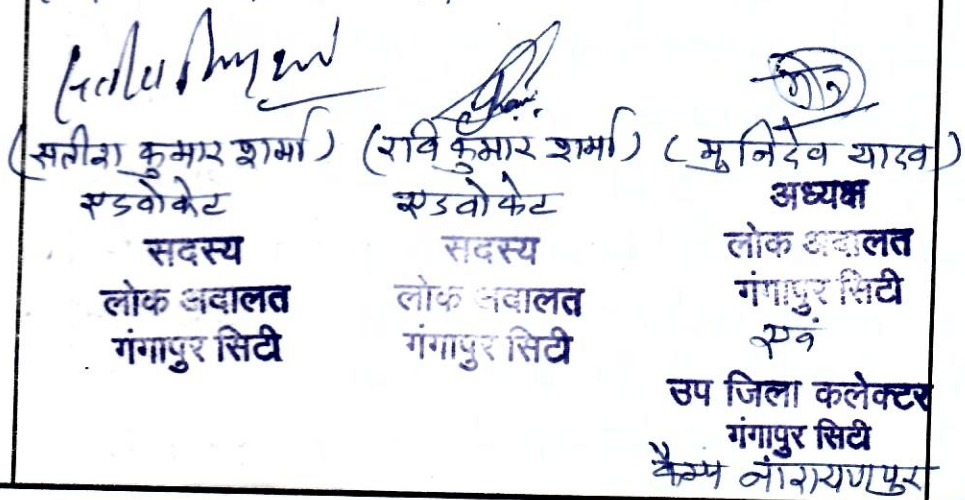 (सतीश कुमार शर्मा)
एडवोकेट
सदस्य
लोक अदालत
गंगापुर सिटी
(रवि कुमार शर्मा)
एडवोकेट
सदस्य
लोक अदालत
गंगापुर सिटी
(मुनिदेव यादव)
अध्यक्ष
लोक अदालत
गंगापुर सिटी
एवं
उप जिला कलेक्टर
गंगापुर सिटी
कैम्प नारायणपुर